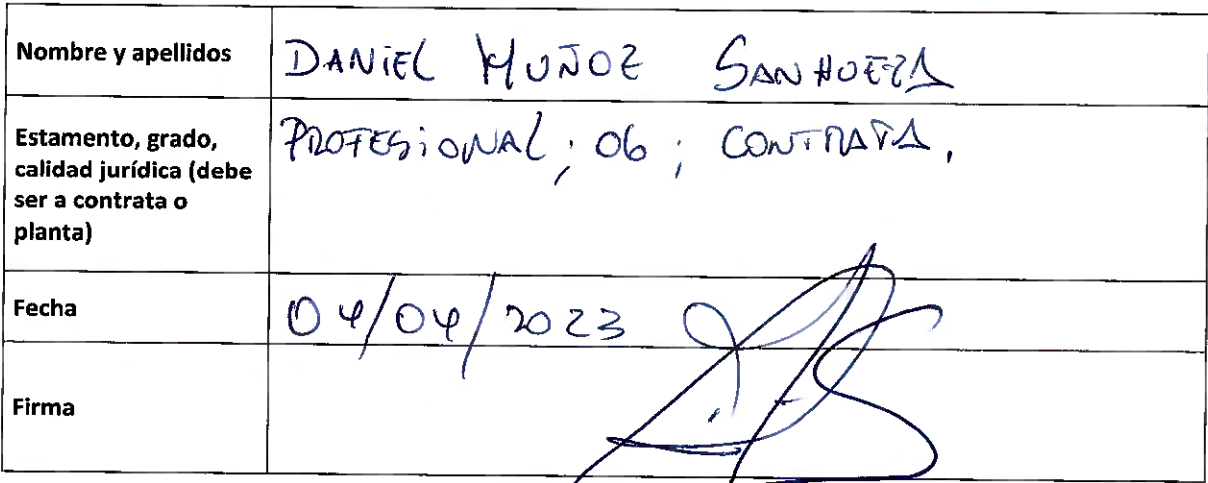 Nombre y apellidos
DANiEL MUÑOZ SANHUEZA
Estamento, grado,
calidad jurídica (debe
ser a contrata o
planta)
PROFESiONAL; 06; CONTRATA.
Fecha
04/04/2023
Firma